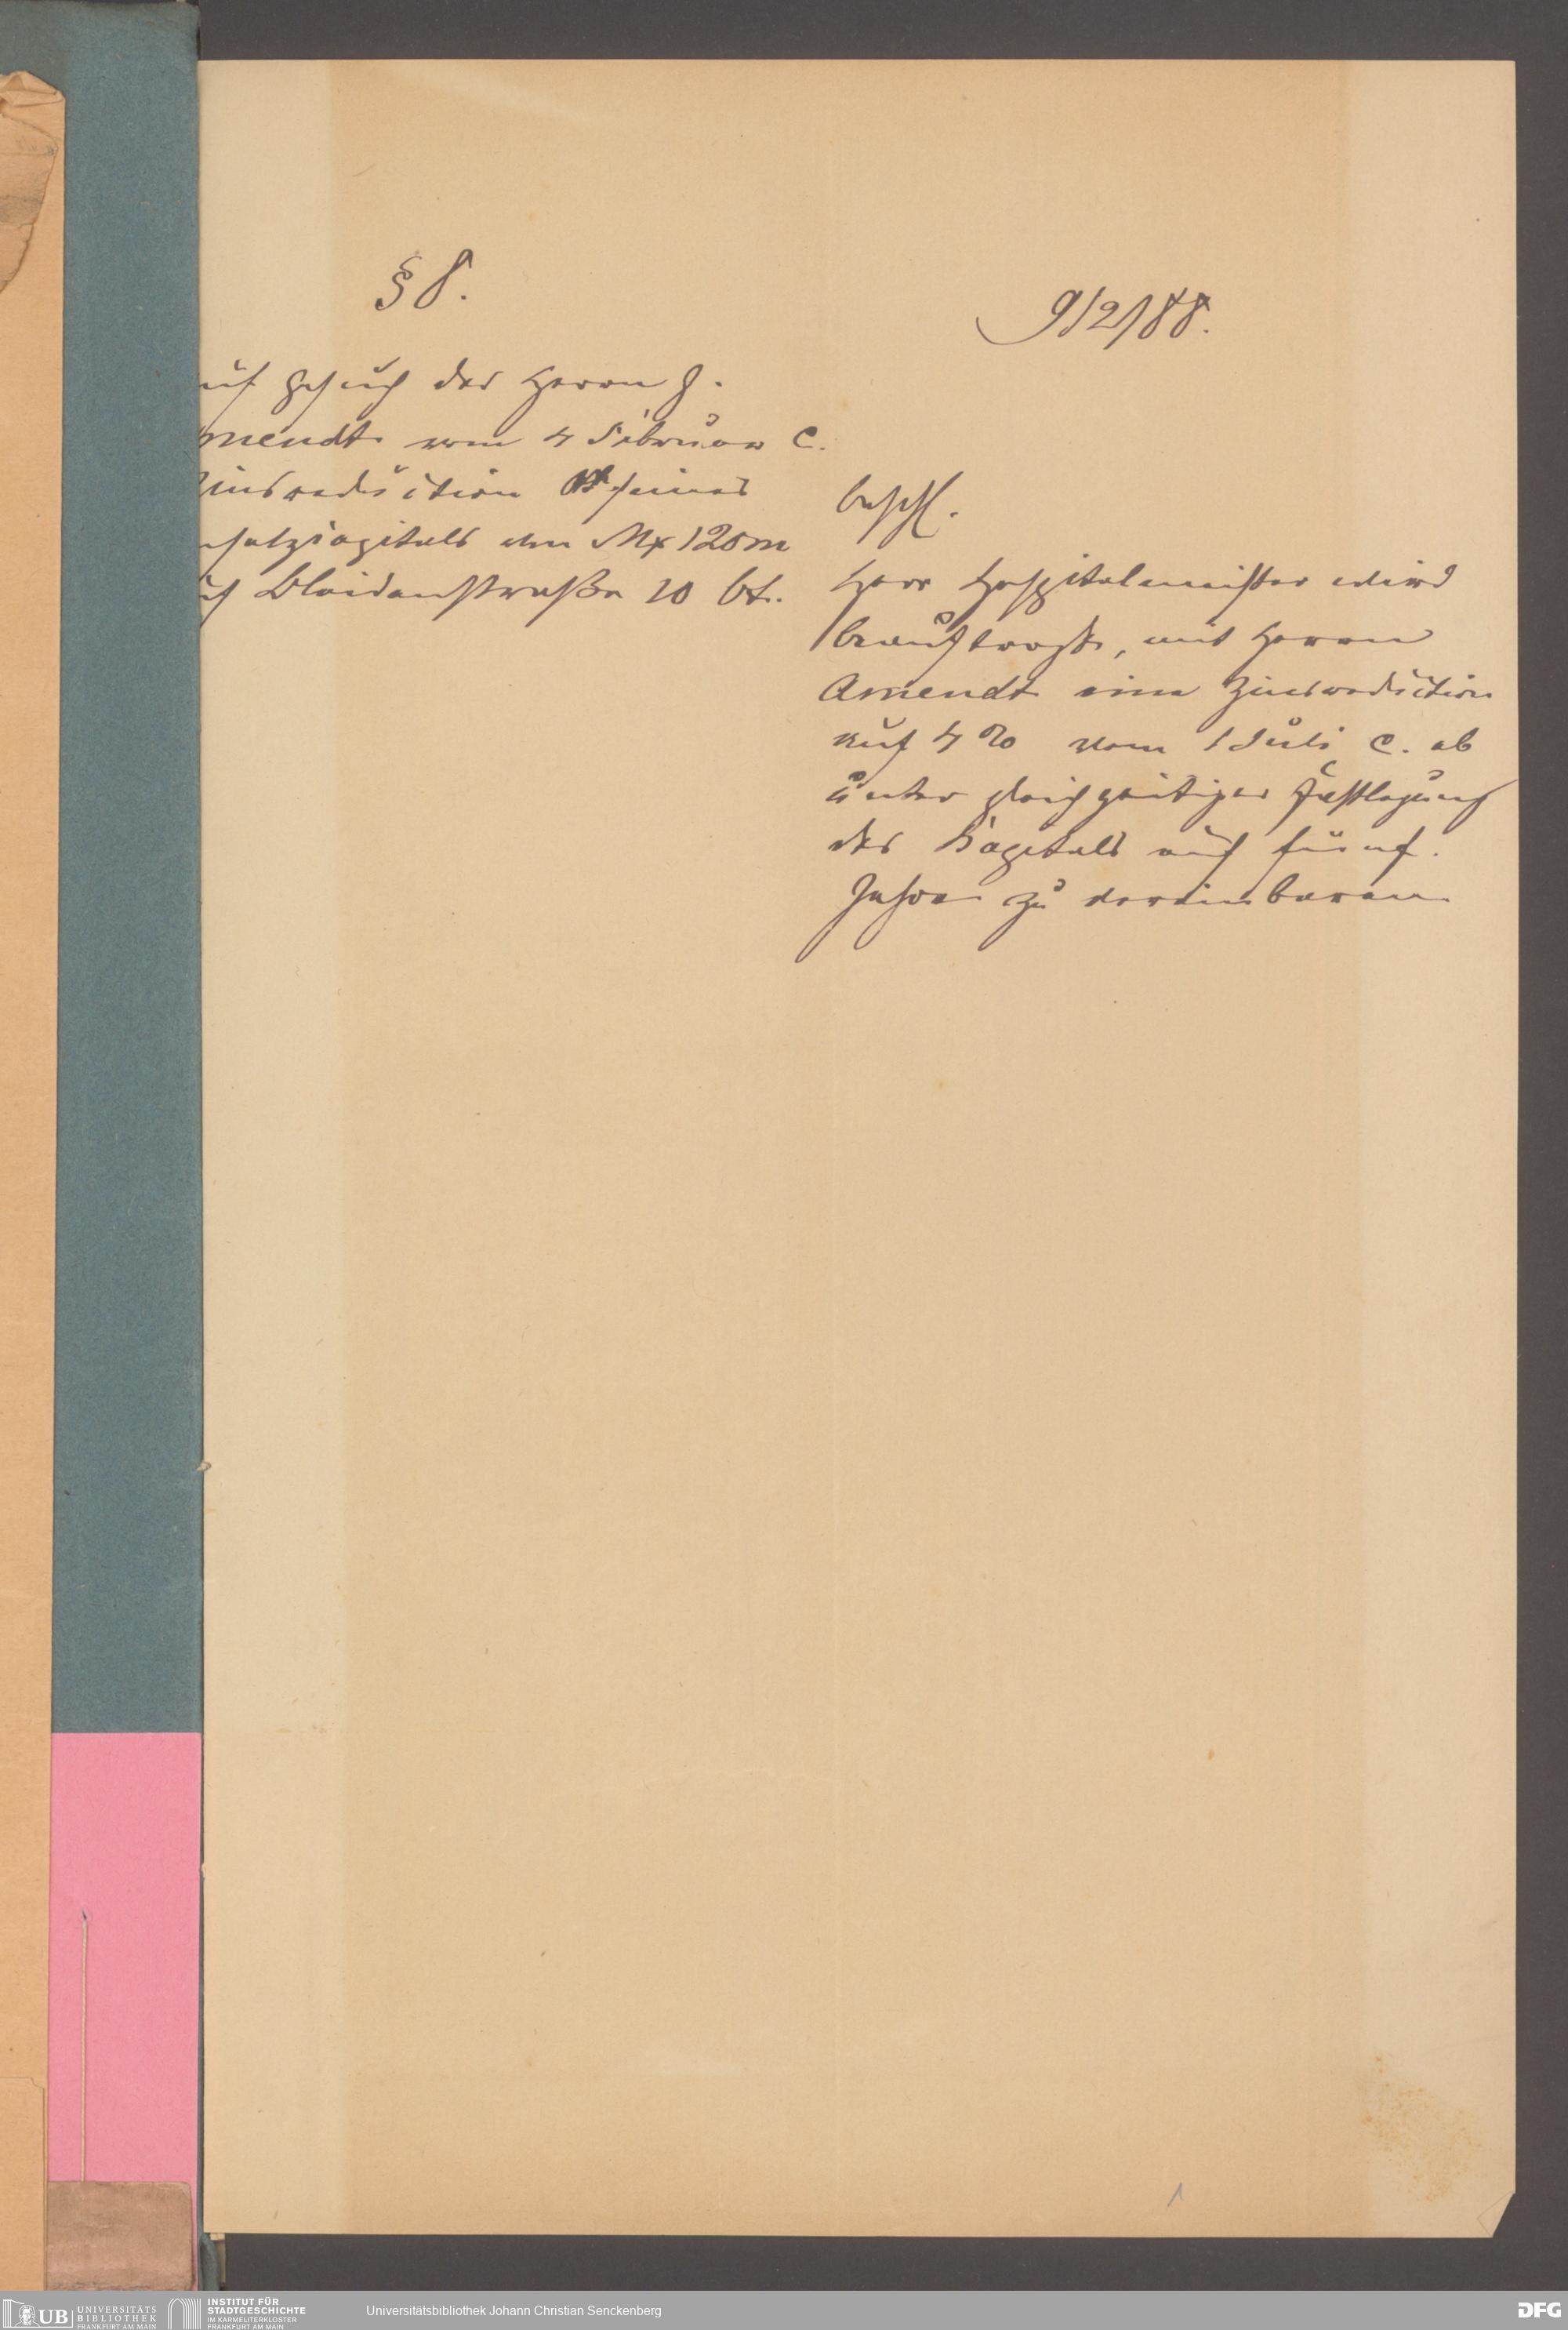 § 8.
uf Gesuch des Herrn J.
mendt vom 4 Februar c.
Zinsreduction seines
nsatzcapitals von Mk 120m
uf Bleidenstraße 10 bt.
9/2/88.
beschl.
Herr Hospitalmeister wird
beauftragt, mit Herrn
Amendt eine Zinsreduction
auf 4 % vom 1 Juli c. ab
unter gleichzeitiger Festlegung
des Capitals auf fünf
Jahre zu vereinbaren
1
UB UNIVERSITÄTS
BIBLIOTHEK
FRANKFURT AM MAIN
INSTITUT FÜR
STADTGESCHICHTE
IM KARMELITERKLOSTER
FRANKFURT AM MAIN
Universitätsbibliothek Johann Christian Senckenberg
DFG